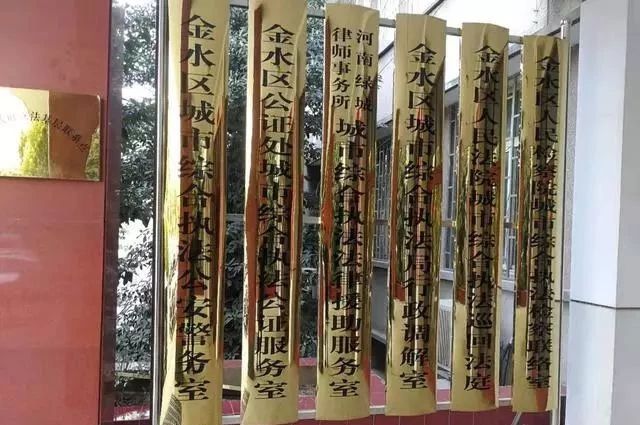 法基层联系点
金水区城市综合执法公安警务室
金水区公证处城市综合执法公证服务室
河南绿城
律师事务所
城市综合执法法律援助服务室
金水区城市综合执法局行政调解室
金水区人民法院城市综合执法巡回法庭
金水区人民检察院城市综合执法检察联络室